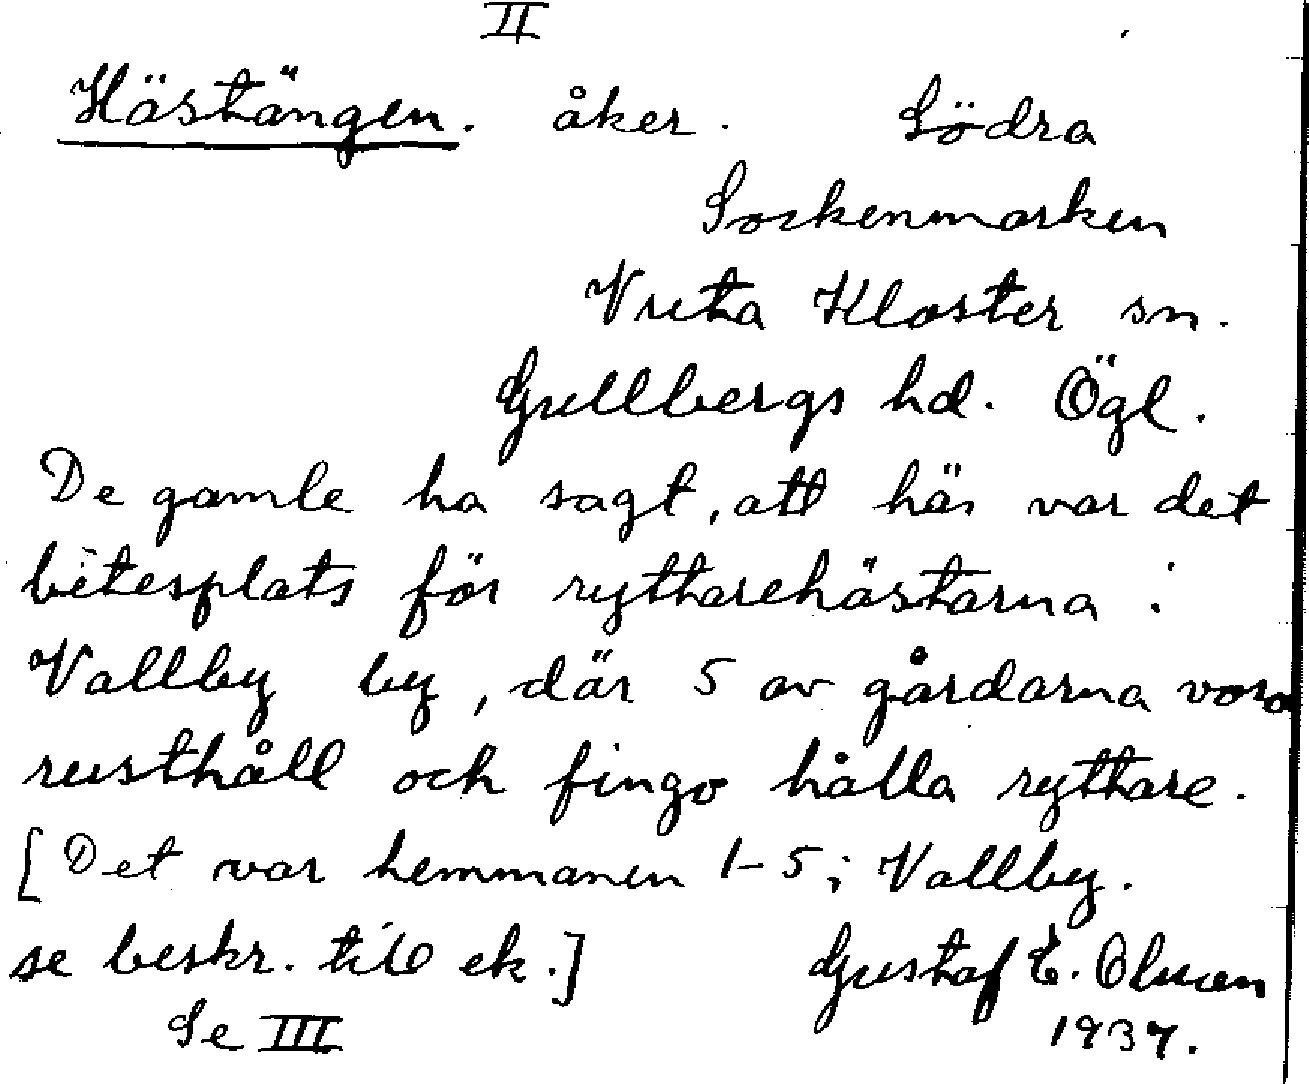 II
Hästängen. åker. Södra
Sockenmarken
Vreta Kloster sn.
Gullbergs hd. Ögl.
De gamle ha sagt, att här var det
betesplats för ryttarehästarna i
Vallby by, där 5 av gårdarna voro
rusthåll och fingo hålla ryttare.
[Det var hemmanen 1-5 i Vallby.
se beskr. till ek.] Gustaf E.
Se III 1937.